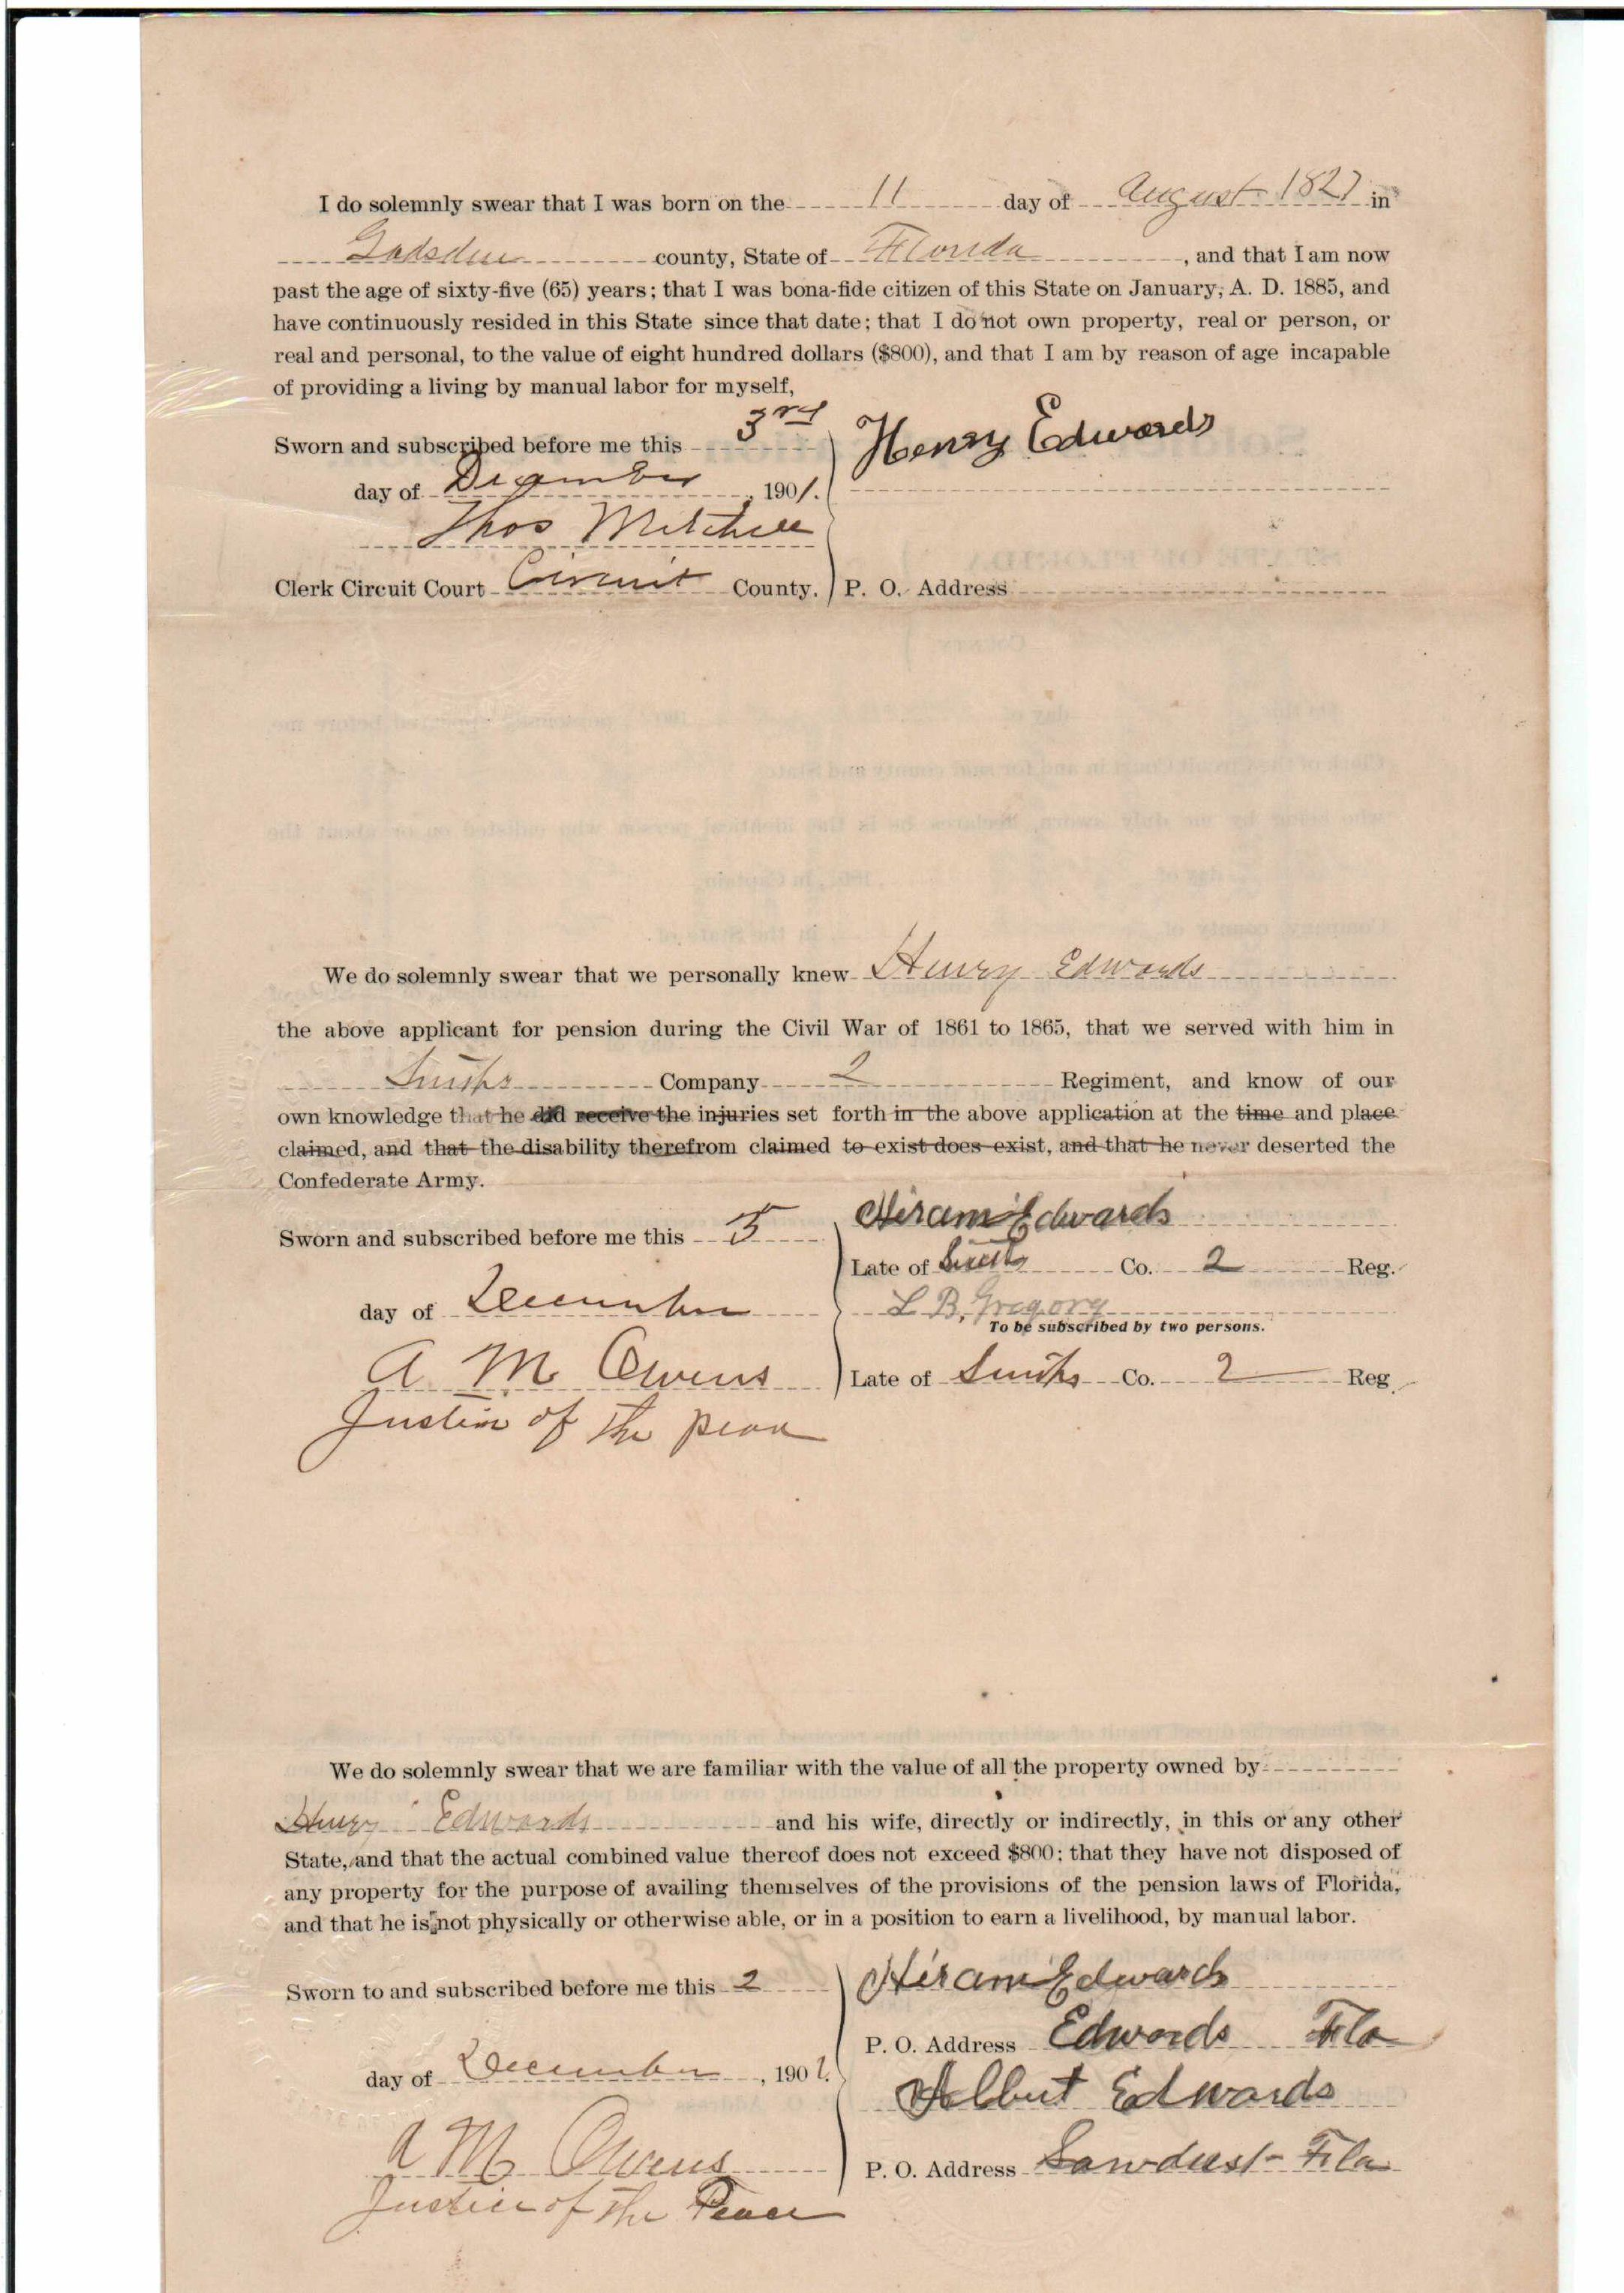 I do solemnly swear that I was born on the 11 day of August 1827 in
Gadsden county, State of Florida, and that I am now
past the age of sixty-five (65) years; that I was bona-fide citizen of this State on January, A. D. 1885, and
have continuously resided in this State since that date; that I do not own property, real or person, or
real and personal, to the value of eight hundred dollars ($800), and that I am by reason of age incapable
of providing a living by manual labor for myself,
Sworn and subscribed before me this 3rd
Henry Edwards
day of December, 1901.
Thos Mitchell
Clerk Circuit Court Circuit County. P. O. Address
We do solemnly swear that we personally knew Henry Edwards
the above applicant for pension during the Civil War of 1861 to 1865, that we served with him in
Smiths Company 2 Regiment, and know of our
own knowledge that he did receive the injuries set forth in the above application at the time and place
claimed, and that the disability therefrom claimed to exist does exist, and that he never deserted the
Confederate Army.
Sworn and subscribed before me this 5
Hiram Edwards
Late of Smiths Co. 2 Reg.
day of December
L B. Gregory
To be subscribed by two persons.
A M Owens
Late of Smiths Co. 2 Reg
Justice of the peace
We do solemnly swear that we are familiar with the value of all the property owned by
Henry Edwards and his wife, directly or indirectly, in this or any other
State, and that the actual combined value thereof does not exceed $800; that they have not disposed of
any property for the purpose of availing themselves of the provisions of the pension laws of Florida,
and that he is not physically or otherwise able, or in a position to earn a livelihood, by manual labor.
Sworn to and subscribed before me this 2
Hiram Edwards
P. O. Address Edwards Fla
day of December, 1901.
Albut Edwards
A M Owens
P. O. Address Sawdust Fla
Justice of the Peace